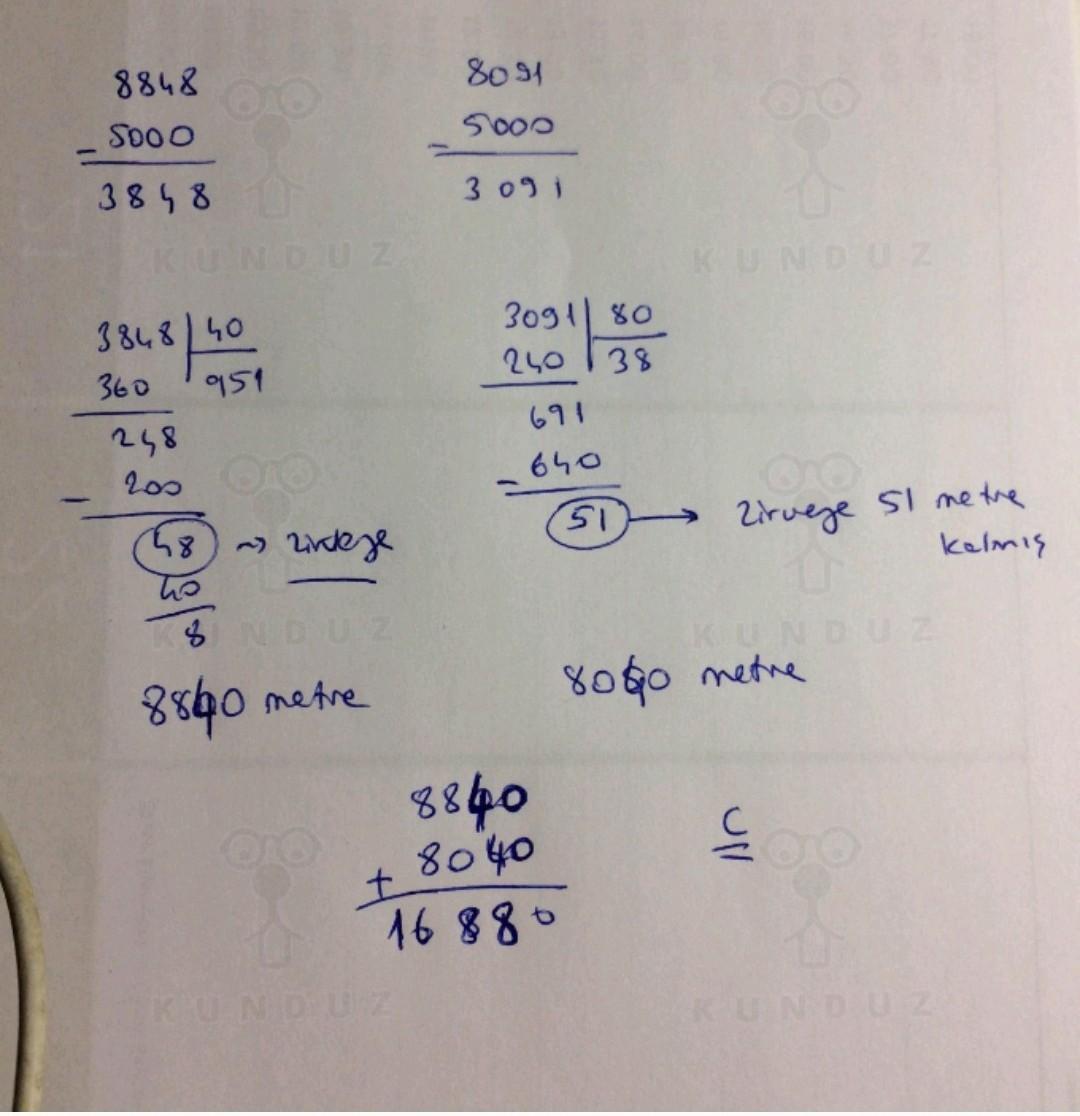 8848
- 5000
3848
8091
- 5000
3091
3848 | 40
360 951
248
- 200
48 → zirveye
40
8
8840 metre
3091 | 80
240 38
691
- 640
51 → zirveye 51 metre
kalmış
8040 metre
8840
+ 8040
16880
C
KUNDUZ KUNDUZ
KUNDUZ KUNDUZ
KUNDUZ KUNDUZ